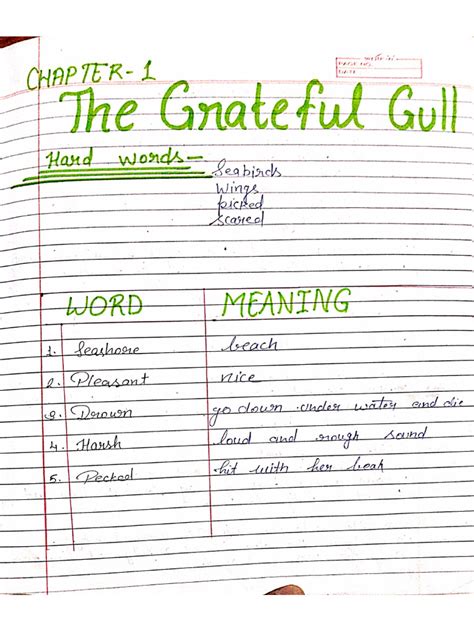 CHAPTER-1
PAGE NO.
DATE
The Grateful Gull
Hard words-
Seabirds
Wings
picked
scared
WORD MEANING
1. Seashore beach
2. Pleasant nice
3. Drown go down under water and die
4. Harsh loud and rough sound
5. Pecked hit with her beak